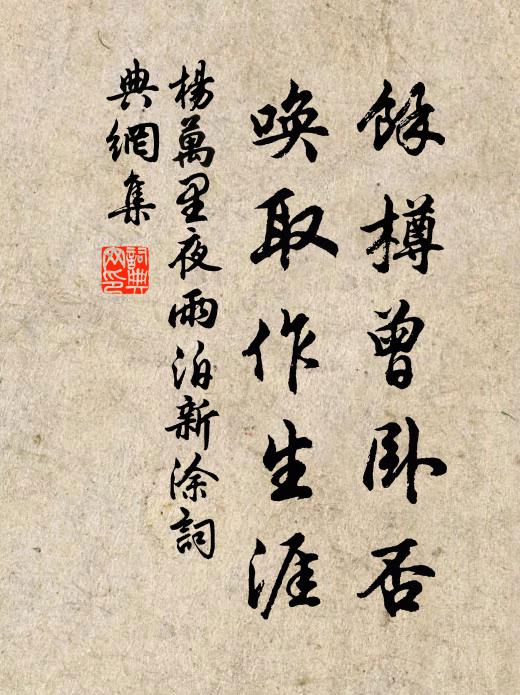 餘樽曾卧否
喚取作生涯
楊萬里夜雨泊新淦詞
典網集
詞典
网印